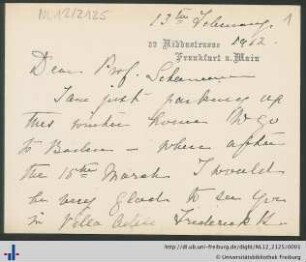 NL12/2125
13ten February. 1
33 Niddastrasse 1912.
Frankfurt a. Main
Dear Prof. Schemann
I am just packing up
this winter home to go
to Baden – where after
the 15th March I would
be very glad to see you
in Villa
http://dl.ub.uni-freiburg.de/diglit/NL12_2125/0001
© Universitätsbibliothek Freiburg